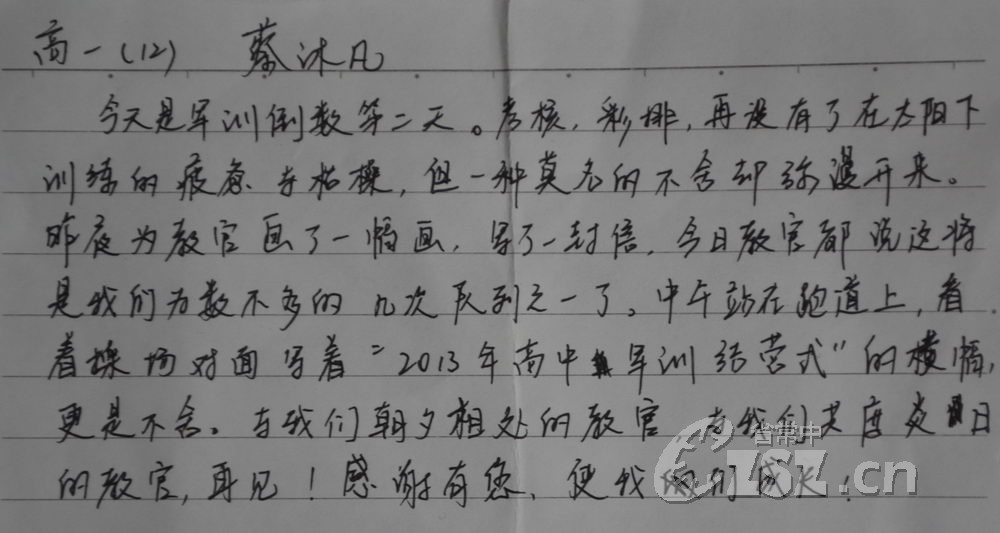 高一(12) 蔡沐凡
今天是军训倒数第二天。考核,彩排,再没有了在太阳下
训练的疲惫与枯燥,但一种莫名的不舍却弥漫开来。
昨夜为教官画了一幅画,写了一封信,今日教官都说这将
是我们为数不多的几次队列之一了。中午站在跑道上,看
着操场对面写着“2013年高中军训结营式”的横幅,
更是不舍。与我们朝夕相处的教官 与我们共度炎日
的教官,再见!感谢有您,使我们成长!
省常中
CZ.cn